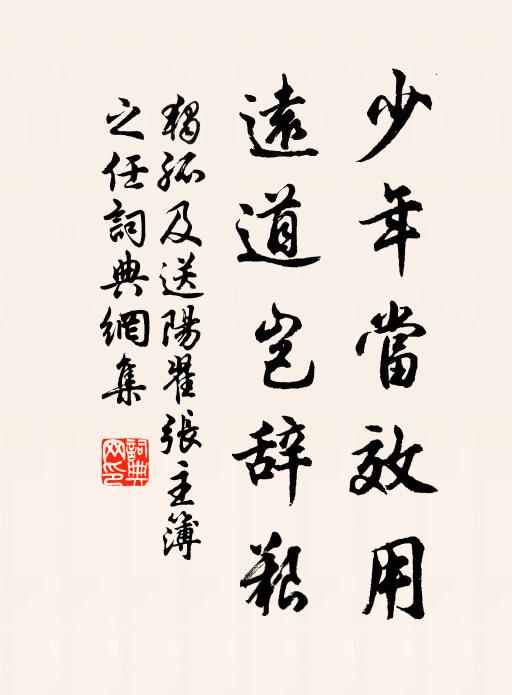 少年當效用
遠道岂辞艱
獨孤及送陽翟張主簿
之任詞典網集
詞典
网印